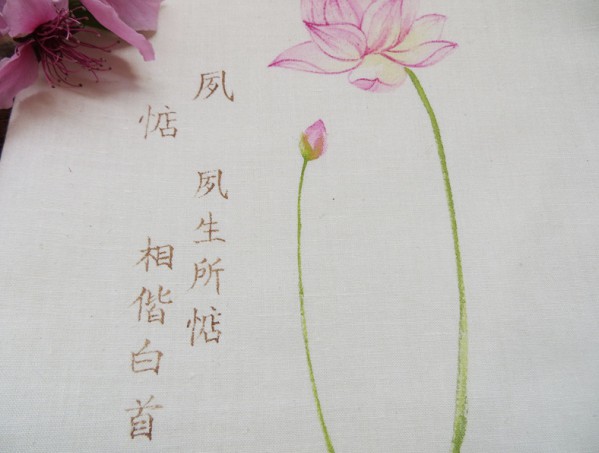 夙
惦
夙生所惦
相偕白首